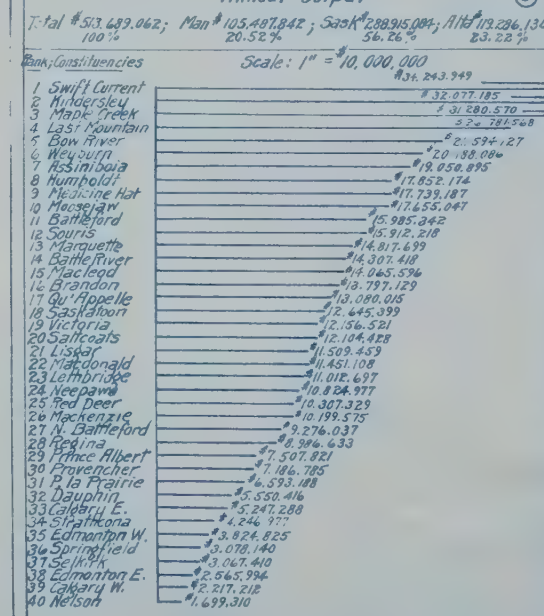 Total $513.689.062; Man $105.487.842; Sask $288.915.084; Alta $119.286.136
100% 20.52% 56.26% 23.22%
Rank; Constituencies Scale: 1" = $10,000,000
1 Swift Current $34.243.949
2 Kindersley $32.077.185
3 Maple Creek $31.280.570
4 Last Mountain $26.781.568
5 Bow River
6 Weyburn $20.188.086
7 Assiniboia $19.050.895
8 Humboldt $17.852.174
9 Medicine Hat $17.739.187
10 Moosejaw $17.655.047
11 Battleford $15.985.242
12 Souris $15.912.218
13 Marquette $14.817.699
14 Battle River $14.307.418
15 Macleod $14.065.596
16 Brandon $13.797.129
17 Qu'Appelle $13.080.015
18 Saskatoon $12.645.399
19 Victoria $12.156.521
20 Saltcoats $12.104.428
21 Lisgar $11.509.459
22 Macdonald $11.451.108
23 Lethbridge $11.012.697
24 Neepawa $10.824.977
25 Red Deer $10.307.329
26 Mackenzie $10.199.575
27 N. Battleford $9.276.037
28 Regina $8.986.633
29 Prince Albert $7.507.821
30 Provencher $7.186.785
31 P. la Prairie $6.593.188
32 Dauphin $5.550.416
33 Calgary E. $5.247.288
34 Strathcona $4.246.977
35 Edmonton W. $3.824.825
36 Springfield $3.078.140
37 Selkirk $3.067.410
38 Edmonton E. $2.565.994
39 Calgary W. $2.217.212
40 Nelson $1.699.310